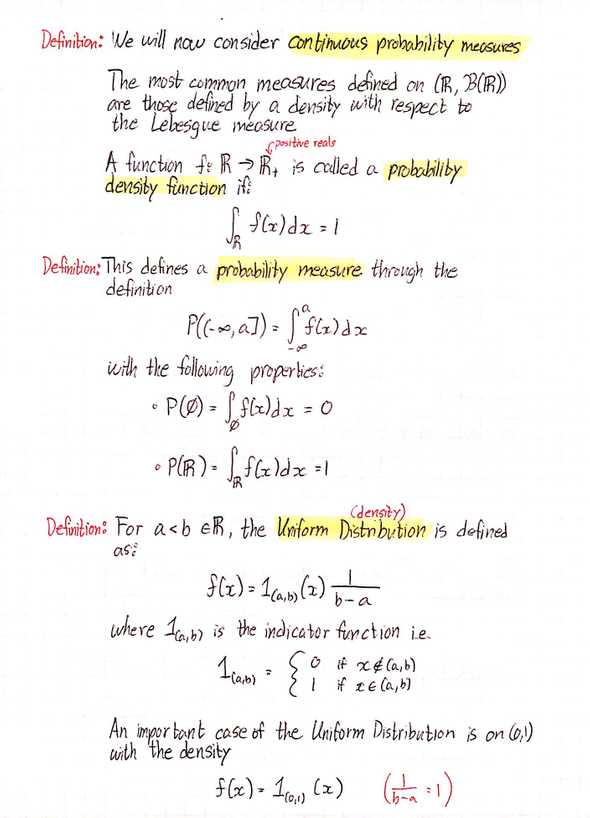 Definition: We will now consider continuous probability measures
The most common measures defined on (ℝ, B(ℝ))
are those defined by a density with respect to
the Lebesgue measure
positive reals
A function f: ℝ → ℝ₊ is called a probability
density function if:
∫_ℝ f(x)dx = 1
Definition: This defines a probability measure through the
definition
P((-∞, a]) = ∫_{-∞}^{a} f(x)dx
with the following properties:
• P(∅) = ∫_∅ f(x)dx = 0
• P(ℝ) = ∫_ℝ f(x)dx = 1
(density)
Definition: For a<b ∈ℝ, the Uniform Distribution is defined
as:
f(x) = 1_{(a,b)}(x) 1/(b-a)
where 1_{(a,b)} is the indicator function i.e.
1_{(a,b)} = { 0 if x∉(a,b)
1 if x∈(a,b)
An important case of the Uniform Distribution is on (0,1)
with the density
f(x) = 1_{(0,1)}(x) (1/(b-a) = 1)